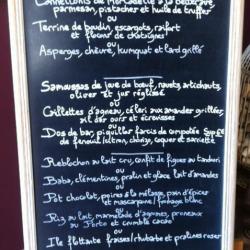 Cannellonis de Mortadelle à la betterave,
parmesan, pistaches et huile de truffe
ou
Terrine de boudin, escargots, raifort
et flocons de chataignes
ou
Asperges, chèvre, kumquat et lard grillé
Samoussas de joue de bœuf, navets, artichauts,
olives et jus réglisse
ou
Côtelettes d'agneau, céleri aux amandes grillées,
ail des ours et écrevisses
ou
Dos de bar, piquillos farcis de compotée
de fenouil, citron, chorizo, coques et sarriette
Reblochon au lait cru, confit de figues au tandoori
ou
Baba, clémentines, pralin et glace lait d'amandes
ou
Pot chocolat, poires à la mélasse, pain d'épices
et mascarpone / fromage blanc
ou
Riz au lait, marmelade d'agrumes, pruneaux
au Porto et crumble cacao
ou
Ile flottante fraises/rhubarbe et pralines roses